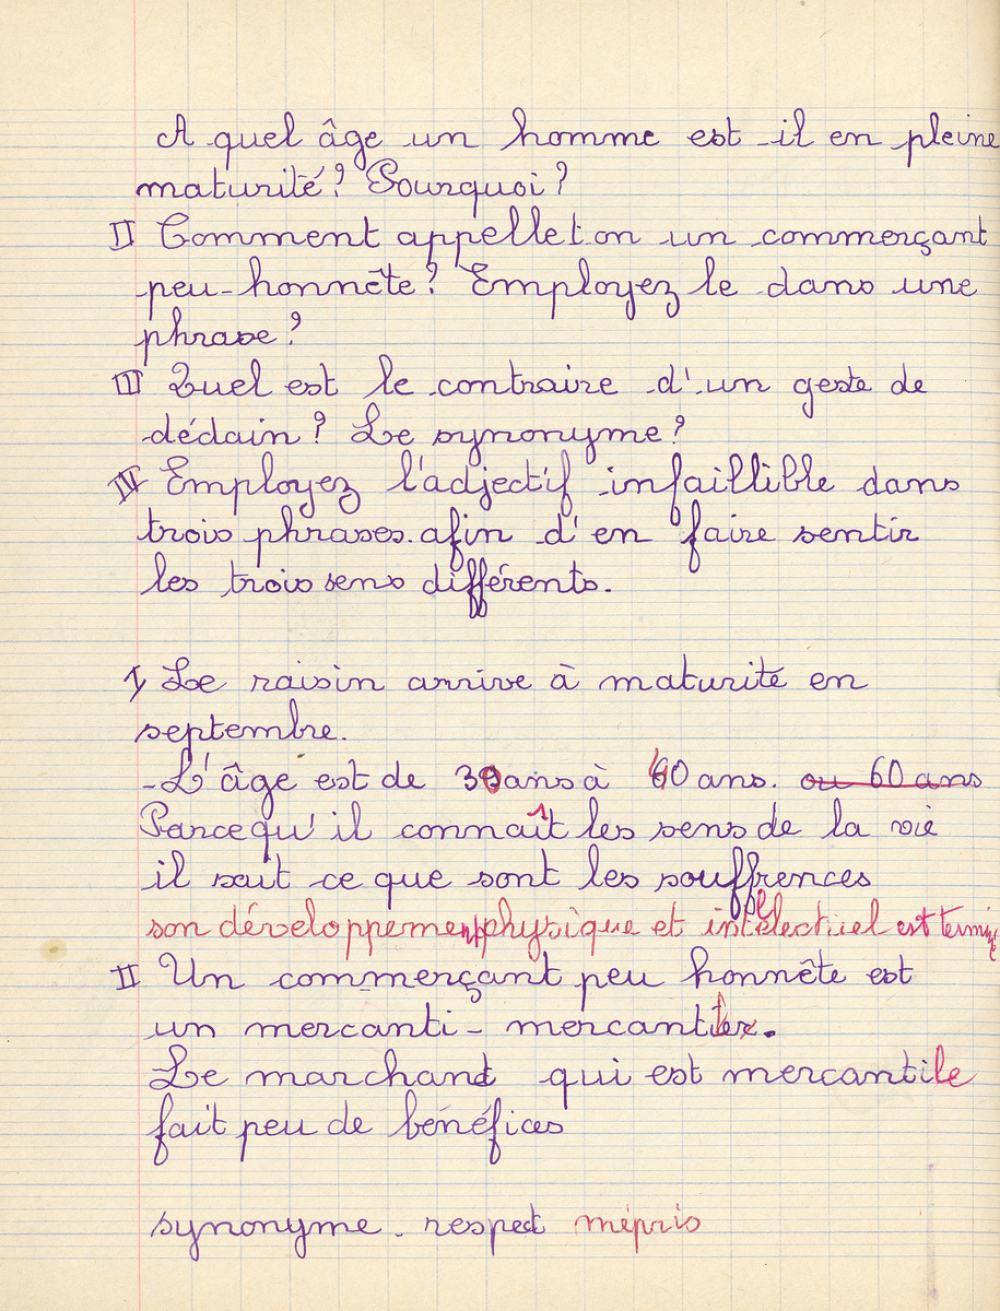 A quel âge un homme est-il en pleine
maturité? Pourquoi?
II Comment appellet on un commerçant
peu-honnête? Employez le dans une
phrase?
III Quel est le contraire d'un geste de
dédain? Le synonyme?
IV Employez l'adjectif infaillible dans
trois phrases. afin d'en faire sentir
les trois sens différents.
I Le raisin arrive à maturité en
septembre.
- L'âge est de 30 ans à 40 ans. ou 60 ans
Parcequ'il connaît les sens de la vie
il sait ce que sont les souffrences
son développement physique et intellectuel est terminé
II Un commerçant peu honnête est
un mercanti - mercantile.
Le marchand qui est mercantile
fait peu de bénéfices
synonyme. respect mépris